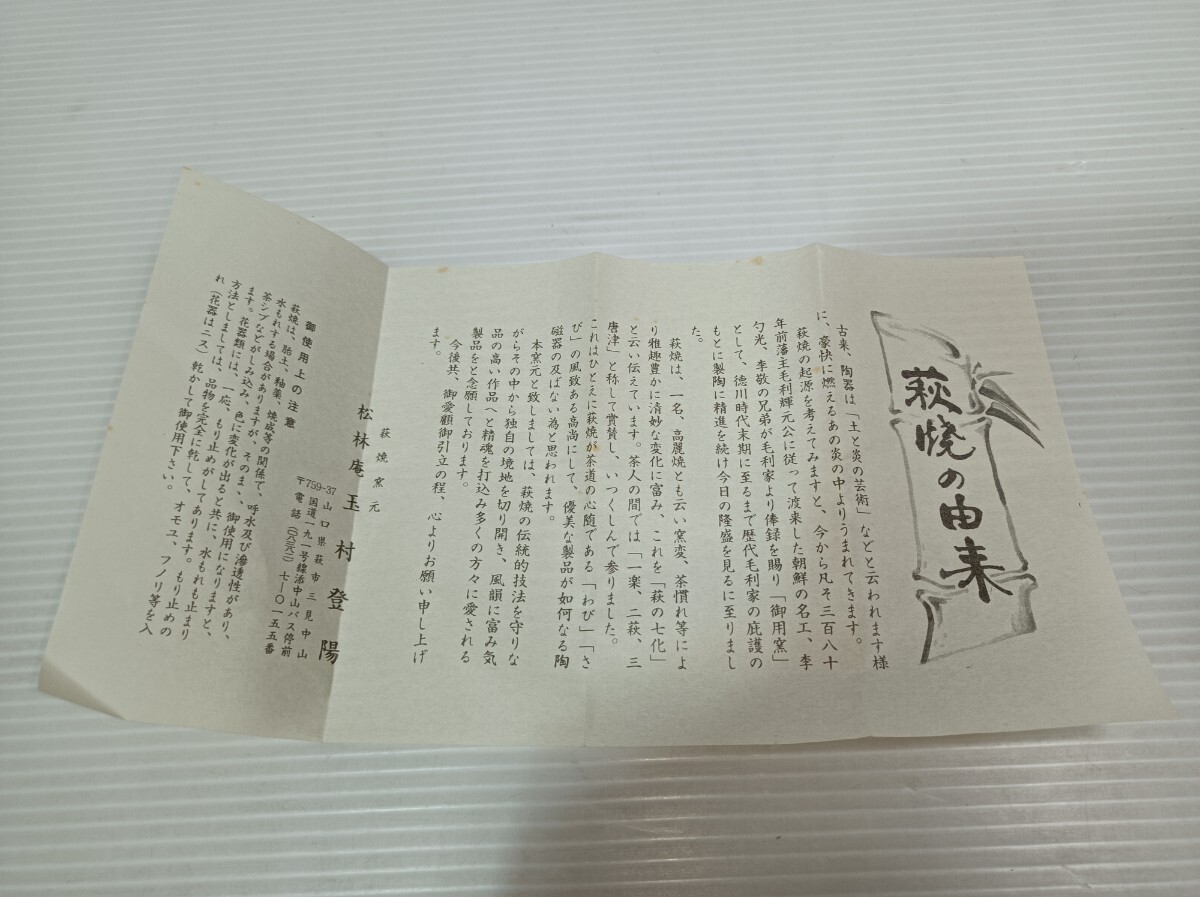 萩焼の由来
古来、陶器は「土と炎の芸術」などと云われます様
に、豪快に燃えるあの炎の中よりうまれてきます。
萩焼の起源を考えてみますと、今から凡そ三百八十
年前藩主毛利輝元公に従って渡来した朝鮮の名工、李
勺光、李敬の兄弟が毛利家より俸録を賜り「御用窯」
として、徳川時代末期に至るまで歴代毛利家の庇護の
もとに製陶に精進を続け今日の隆盛を見るに至りまし
た。
萩焼は、一名、高麗焼とも云い窯変、茶慣れ等によ
り雅趣豊かに清妙な変化に富み、これを「萩の七化」
と云い伝えています。茶人の間では「一楽、二萩、三
唐津」と称して賞賛し、いつくしんで参りました。
これはひとえに萩焼が茶道の心随である「わび」「さ
び」の風致ある高尚にして、優美な製品が如何なる陶
磁器の及ばない為と思われます。
本窯元と致しましては、萩焼の伝統的技法を守りな
がらその中から独自の境地を切り開き、風韻に富み気
品の高い作品へと精魂を打込み多くの方々に愛される
製品をと念願しております。
今後共、御愛顧御引立の程、心よりお願い申し上げ
ます。
萩焼窯元
松林庵 玉村登陽
〒759-37 山口県萩市三見中山
国道一九一号線添中山バス停前
電話(〇八三八二)七―〇一五五番
御使用上の注意
萩焼は、胎土、釉薬、焼成等の関係で、呼水及び滲透性があり、
水もれする場合がありますが、そのまゝ、御使用になりますと、
茶シブなどがしみ込み、色に変化が出ると共に、水もれも止まり
ます。花器類には、一応、もり止めがしてあります。もり止めの
方法としましては、品物を完全に乾して、オモユ、フノリ等を入
れ(花器はニス)乾かして御使用下さい。